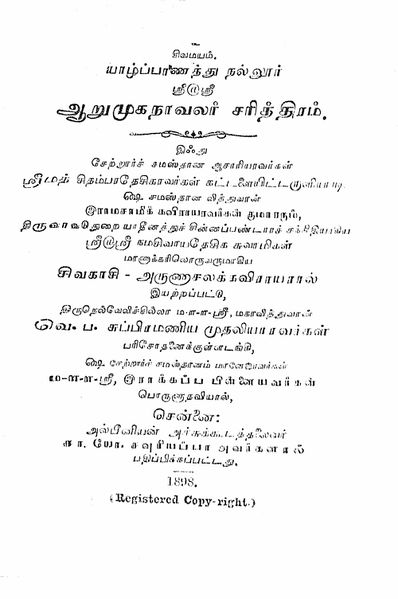 உ
சிவமயம்.
யாழ்ப்பாணத்து நல்லூர்
ஸ்ரீலஸ்ரீ
ஆறுமுகநாவலர் சரித்திரம்.
இஃது
சேற்றூர்ச் சமஸ்தான ஆசாரியரவர்கள்
ஸ்ரீமத் சிதம்பரதேசிகரவர்கள் கட்டளையிட்டருளியபடி
ஷெ சமஸ்தான வித்துவான்
இராமசாமிக் கவிராயரவர்கள் குமாரரும்,
திருவாவடுதுறை யாதீனத்துச் சின்னப்பண்டாரச் சந்நிதியாகிய
ஸ்ரீலஸ்ரீ நமசிவாயதேசிக சுவாமிகள்
மாணாக்கரிலொருவருமாகிய
சிவகாசி - அருணாசலக்கவிராயரால்
இயற்றப்பட்டு,
திருநெல்வேலிச்சில்லா ம-ள-ள-ஸ்ரீ, மகாவித்துவான்
வெ. ப. சுப்பிரமணிய முதலியாரவர்கள்
பரிசோதனைக்குள்ளடங்கி,
ஷெ சேற்றூர்ச் சமஸ்தானம் மானேஜரவர்கள்
ம-ள-ள-ஸ்ரீ, இராக்கப்ப பிள்ளையவர்கள்
பொருளுதவியால்,
சென்னை:
அல்பீனியன் அச்சுக்கூடத்தலைவர்
சா. யோ. சவுரியப்பா அவர்களால்
பதிப்பிக்கப்பட்டது.
1898.
(Registered Copy-right.)